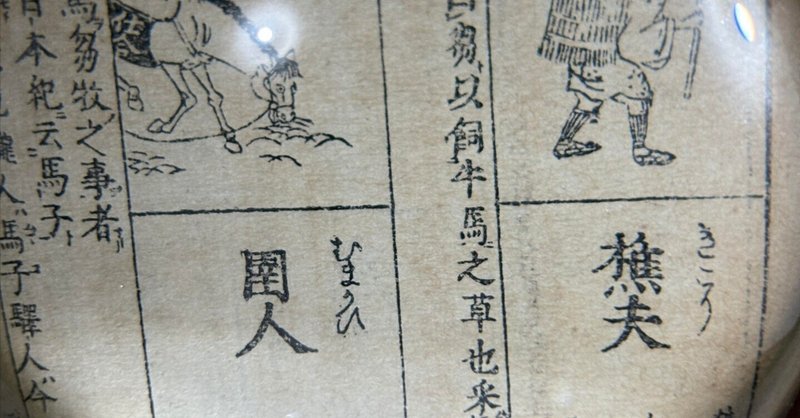 きこり
樵夫
曰芻以飼牛馬之草也采
むまかひ
圉人
馬芻牧之事者
日本紀云馬子
人馬子驛人今